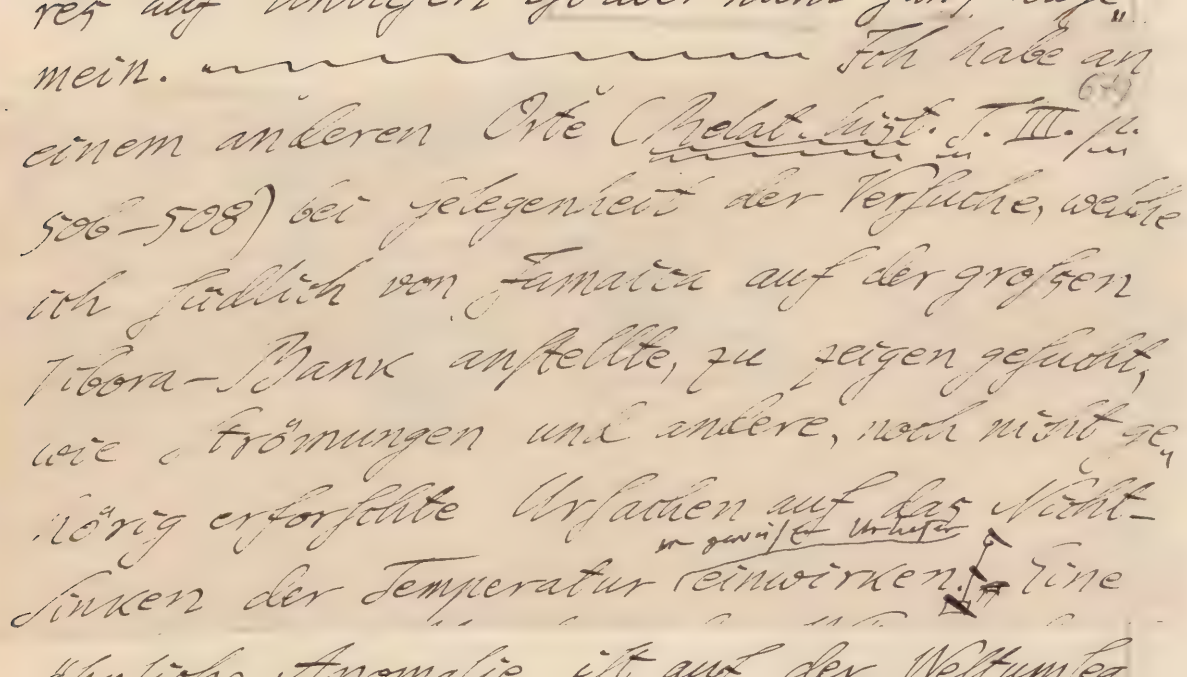 res auf
mein. Ich habe an
einem anderen Orte (Relat. hist. T. III. p.
506–508) bei Gelegenheit der Versuche, welche
ich südlich von Jamaica auf der grossen
Vibora-Bank anstellte, zu zeigen gesucht,
wie Strömungen und andere, noch nicht ge„
hörig erforschte Ursachen auf das Nicht-
in gewisser
Sinken der Temperatur einwirken. Eine
ähnliche Anomalie ist auf der Weltumseg